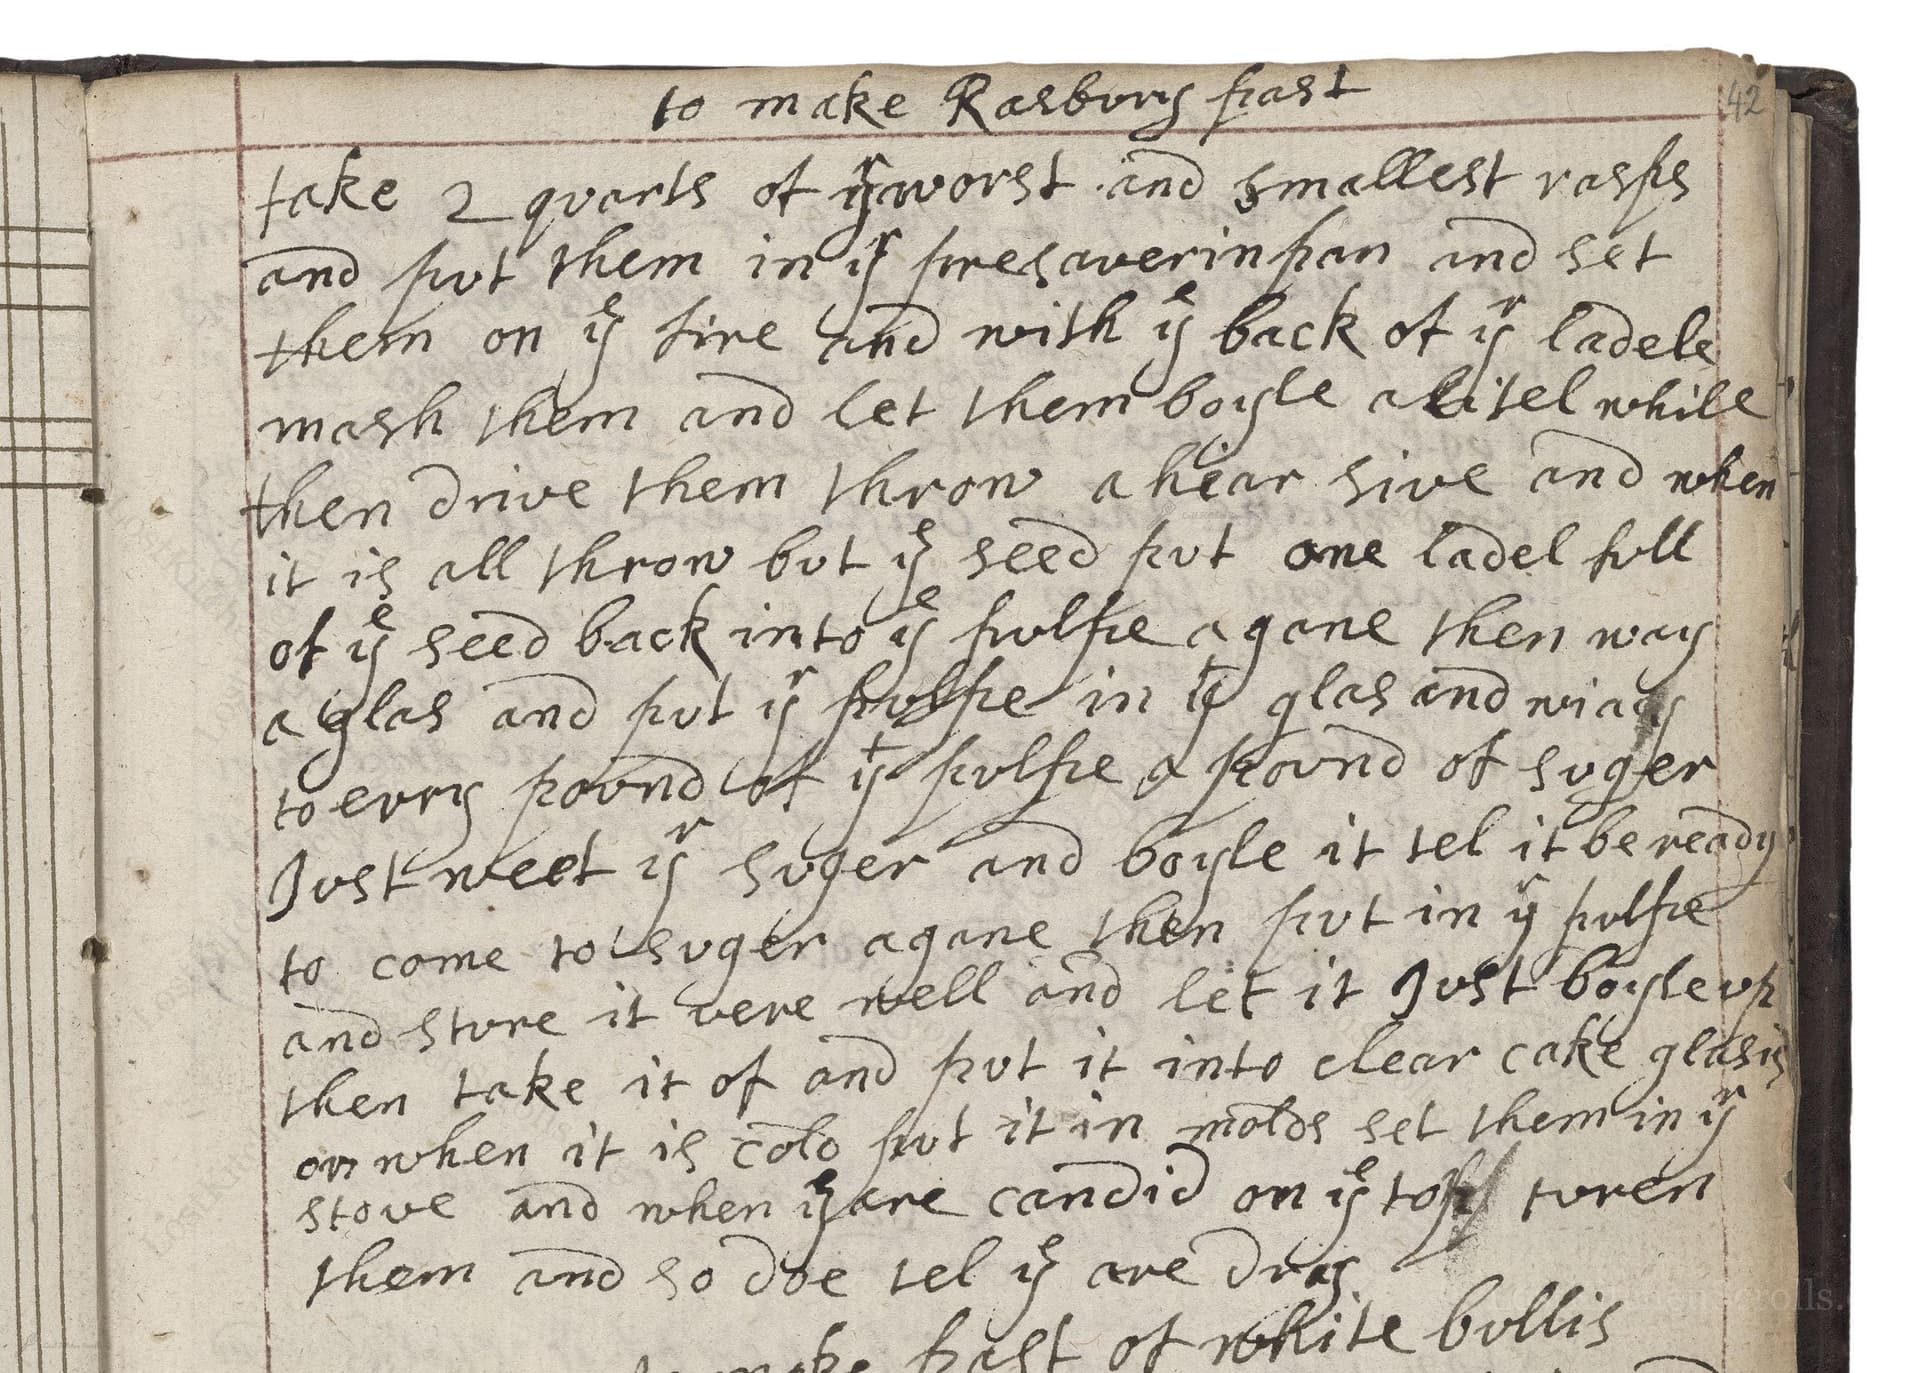 42
to make Rasbury past
take 2 quarts of ye worst and smallest rasps
and put them in ye presaverin pan and set
them on ye fire and with ye back of ye ladele
mash them and let them boyle a litel while
then drive them throw a hear sive and when
it is all throw but ye seed put one ladel full
of ye seed back into ye pulpe agane then way
a glas and put ye pulpe in yt glas and
to evry pound of yt pulpe a pound of suger
Just weet ye suger and boyle it tel it be ready
to come to suger agane then put in ye pulpe
and sture it vere well and let it Just boyle up
then take it of and put it into clear cake glasis
or when it is cold put it in molds set them in ye
stove and when ye are candid on ye top turen
them and so doe tel ye are dray
to make past of white bullis